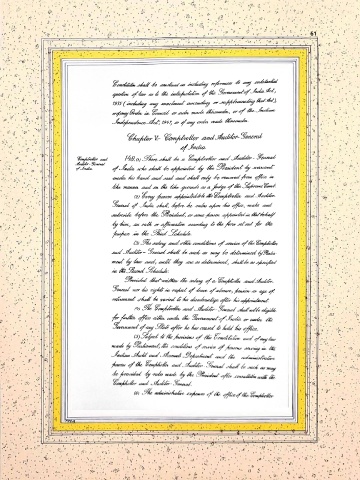 61
Constitution shall be construed as including references to any substantial
question of law as to the interpretation of the Government of India Act,
1935 (including any enactment amending or supplementing that Act),
or of any Order in Council or order made thereunder, or of the Indian
Independence Act, 1947, or of any order made thereunder.
Chapter V- Comptroller and Auditor-General
of India.
Comptroller and
Auditor-General
of India.
148. (1) There shall be a Comptroller and Auditor-General
of India who shall be appointed by the President by warrant
under his hand and seal and shall only be removed from office in
like manner and on the like grounds as a Judge of the Supreme Court.
(2) Every person appointed to be the Comptroller and Auditor-
General of India shall, before he enters upon his office, make and
subscribe before the President, or some person appointed in that behalf
by him, an oath or affirmation according to the form set out for the
purpose in the Third Schedule.
(3) The salary and other conditions of service of the Comptroller
and Auditor-General shall be such as may be determined by Parlia-
ment by law and, until they are so determined, shall be as specified
in the Second Schedule:
Provided that neither the salary of a Comptroller and Auditor-
General nor his rights in respect of leave of absence, pension or age of
retirement shall be varied to his disadvantage after his appointment.
(4) The Comptroller and Auditor-General shall not be eligible
for further office either under the Government of India or under the
Government of any State after he has ceased to hold his office.
(5) Subject to the provisions of this Constitution and of any law
made by Parliament, the conditions of service of persons serving in the
Indian Audit and Accounts Department and the administrative
powers of the Comptroller and Auditor-General shall be such as may
be prescribed by rules made by the President after consultation with the
Comptroller and Auditor-General.
(6) The administrative expenses of the office of the Comptroller